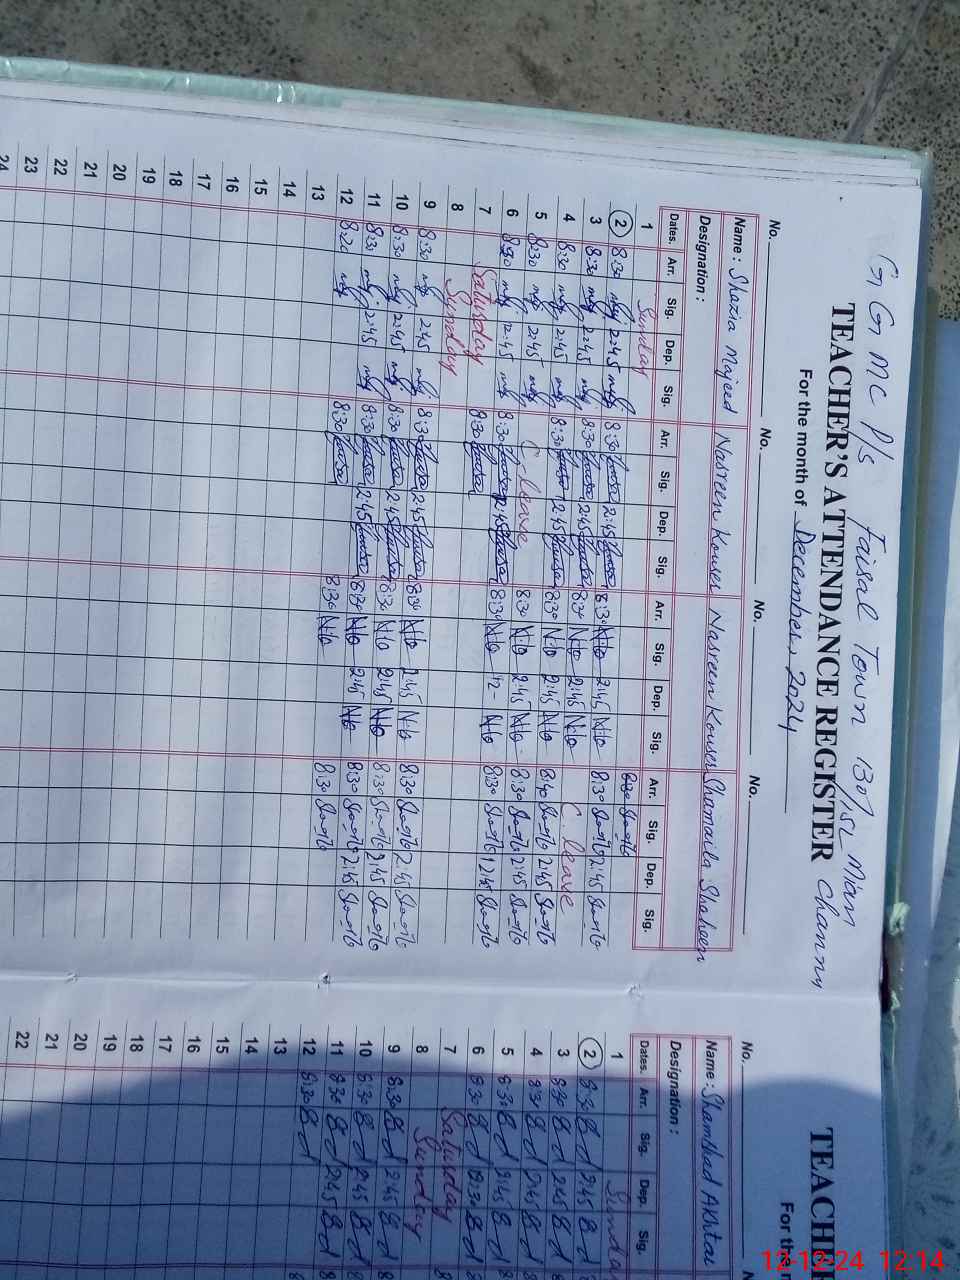 G G M C P/S Faisal Town 130/15L Mian Channy
TEACHER'S ATTENDANCE REGISTER
For the month of December, 2024
No. No. No. No.
Name : Shazia Majeed Nasreen Kouser Nasreen Kouser Shamaila Shaheen
Designation :
Dates. Arr. Sig. Dep. Sig. Arr. Sig. Dep. Sig. Arr. Sig. Dep. Sig. Arr. Sig. Dep. Sig.
1 Sunday 8:30
2 8:30 2:45 8:30 2:45 8:30 2:45 8:30 2:45
3 8:30 2:45 8:30 2:45 8:30 2:45 C. leave
4 8:30 2:45 8:30 2:45 8:30 2:45 8:40 2:45
5 8:30 2:45 C. leave 8:30 2:45 8:30 2:45
6 8:30 12:45 8:30 12:45 8:30 12 8:30 12:45
7 Saturday 8:30
8 Sunday
9 8:30 2:45 8:30 2:45 8:30 2:45 8:30 2:45
10 8:30 2:45 8:30 2:45 8:30 2:45 8:30 2:45
11 8:30 2:45 8:30 2:45 8:30 2:45 8:30 2:45
12 8:20 8:30 8:30 8:30
13
14
15
16
17
18
19
20
21
22
23
24
TEACHE
For the
No.
Name : Shamshad Akhtar
Designation :
Dates. Arr. Sig. Dep. Sig.
1 Sunday
2 8:30 2:45
3 8:30 2:45
4 8:30 2:45
5 8:30 2:45
6 8:30 12:30
7 Saturday
8 Sunday
9 8:30 2:45
10 8:30 2:45
11 8:30 2:45
12 8:30
13
14
15
16
17
18
19
20
21
22
12-12-24 12:14